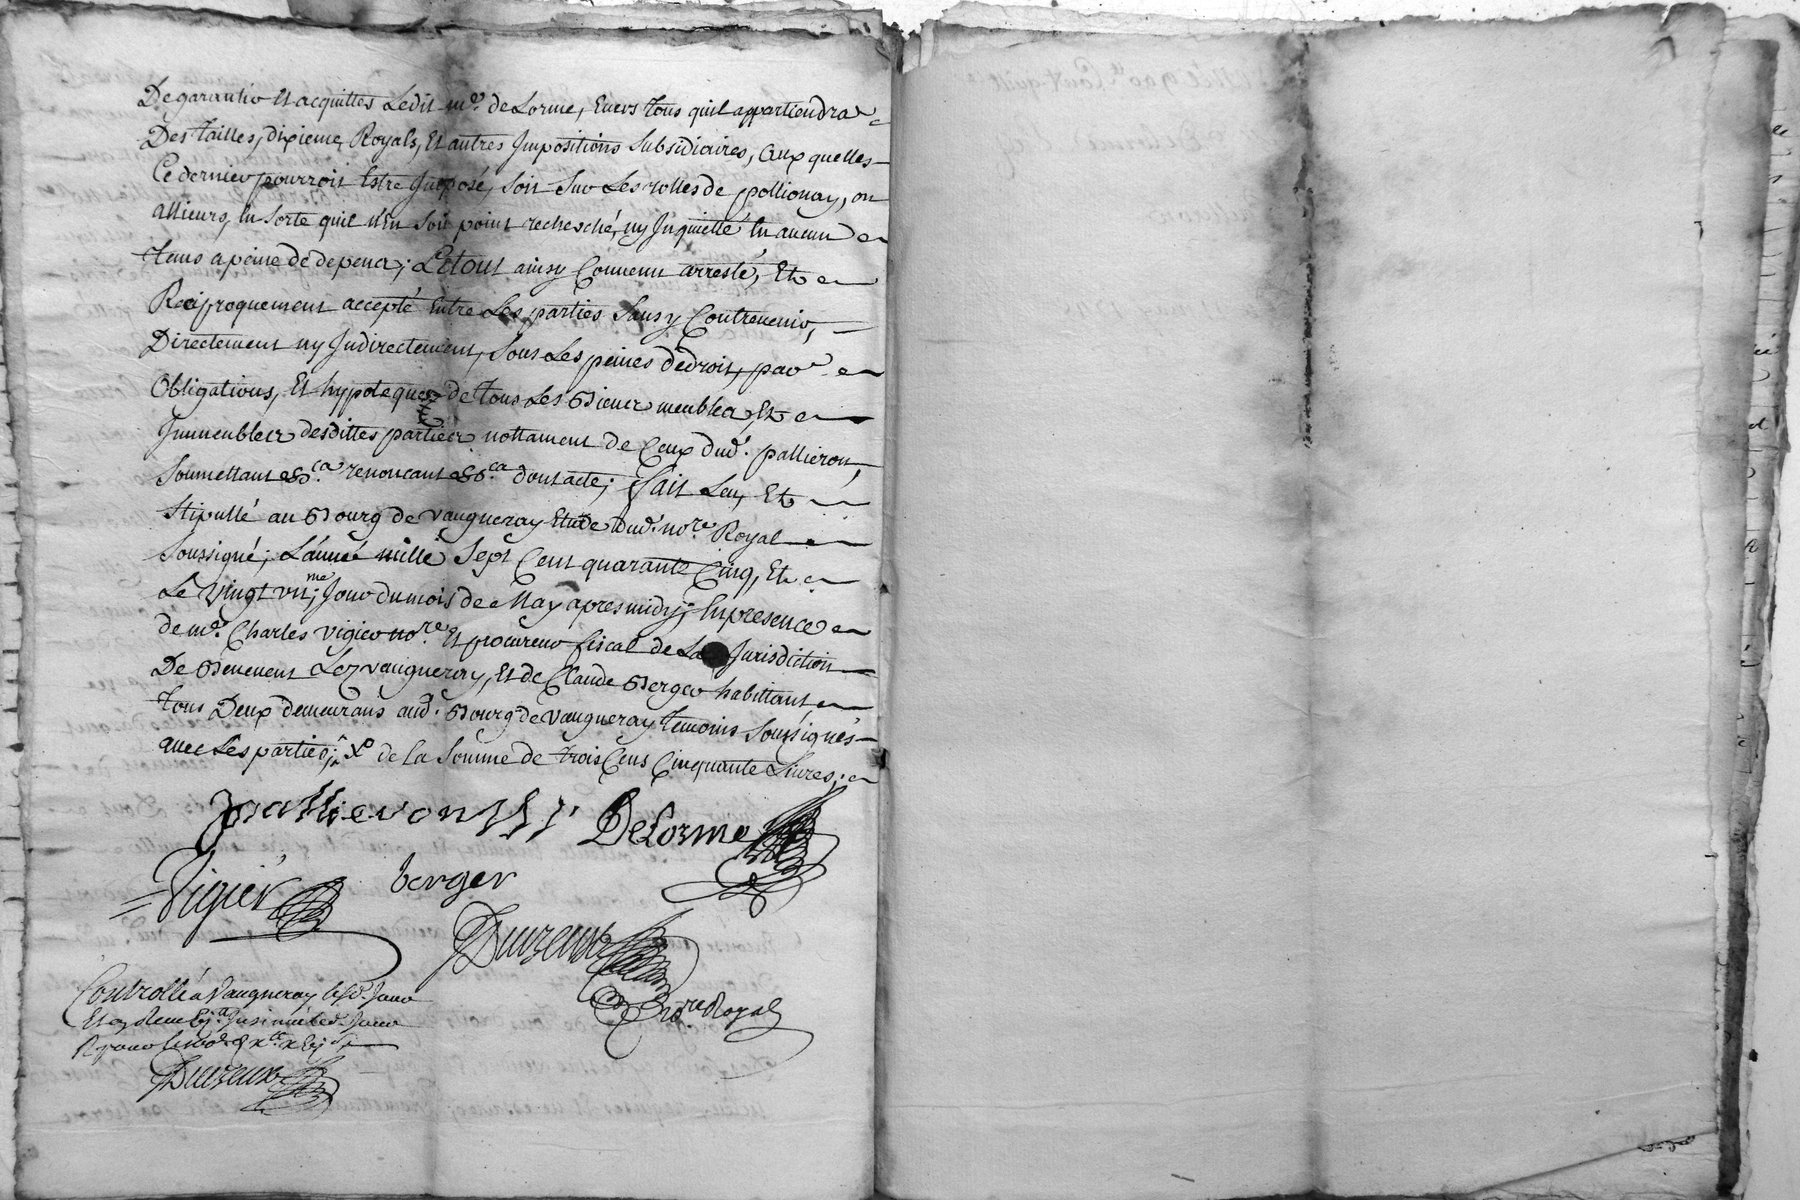 De garantir Et acquitter Ledit mr. de Lorme, Envers tous quil appartiendra
Des tailles, dixieme, Royals, Et autres Impositions subsidiaires, aux quelles
Ce dernier pourroit Estre Imposé, soit sur Les rolles de pollionay, ou
allieurs, En sorte quil n'En soit point recherché, ny Inquietté En aucun
tems a peine de depencs; Le tout ainsy Convenu arresté, Et
Reciproquement accepté Entre Les parties sans y Contrevenir,
Directement ny Indirectement, sous Les peines de droit, par
Obligations, Et hypoteques de tous Les Biens meubles, Et
Immeubles desdittes parties nottament de Ceux dud. pallieron,
soumettant &ca. renoncant &ca. dont acte; fait Leu, Et
stipullé au Bourg de vaugneray Etude dud. nore. Royal
soussigné; L'année mille sept Cent quarante Cinq, Et
Le vingt unme; Jour du mois de May apres midy; En presence
de mr. Charles vigier nore. Et procureur fiscal de La Jurisdiction
De Benevent Lez vaugneray, Et de Claude Berger habittant
tous Deux demeurans aud. Bourg de vaugneray temoins soussignés
avec Les parties; de la somme de trois Cens Cinquante Livres;
J pallieron DeLorme
Vigier berger
Duvzeux
nore Royal
Controllé a Vaugneray led. Jour